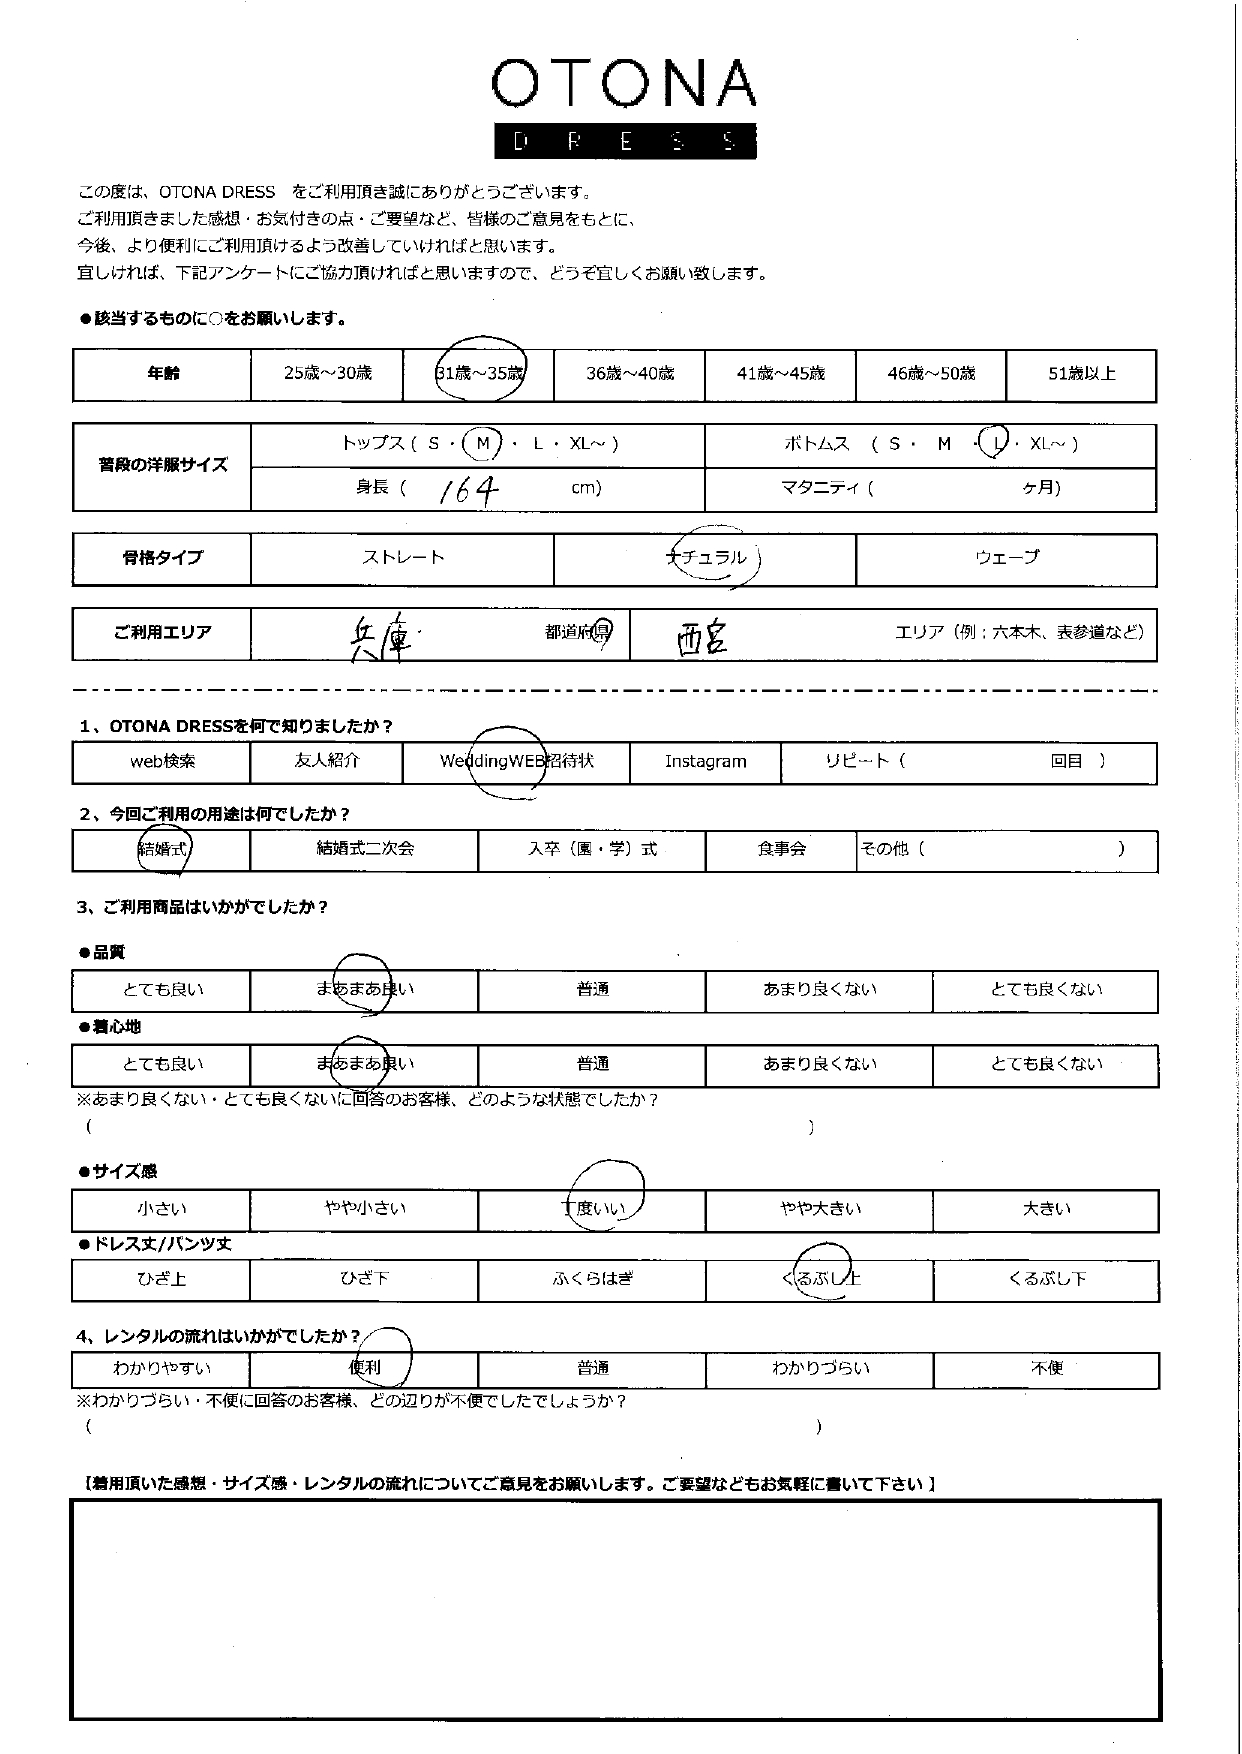 OTONA
DRESS
この度は、OTONA DRESS　をご利用頂き誠にありがとうございます。
ご利用頂きました感想・お気付きの点・ご要望など、皆様のご意見をもとに、
今後、より便利にご利用頂けるよう改善していければと思います。
宜しければ、下記アンケートにご協力頂ければと思いますので、どうぞ宜しくお願い致します。
●該当するものに○をお願いします。
年齢 25歳～30歳 31歳～35歳 36歳～40歳 41歳～45歳 46歳～50歳 51歳以上
普段の洋服サイズ トップス ( S ・ M ・ L ・ XL～ ) ボトムス ( S ・ M ・ L ・ XL～ )
身長 ( 164 cm) マタニティ ( ヶ月)
骨格タイプ ストレート ナチュラル ウェーブ
ご利用エリア 兵庫 都道府県 西宮 エリア（例；六本木、表参道など）
1、OTONA DRESSを何で知りましたか？
web検索 友人紹介 WeddingWEB招待状 Instagram リピート ( 回目 )
2、今回ご利用の用途は何でしたか？
結婚式 結婚式二次会 入卒（園・学）式 食事会 その他 ( )
3、ご利用商品はいかがでしたか？
●品質
とても良い まあまあ良い 普通 あまり良くない とても良くない
●着心地
とても良い まあまあ良い 普通 あまり良くない とても良くない
※あまり良くない・とても良くないに回答のお客様、どのような状態でしたか？
( )
●サイズ感
小さい やや小さい 丁度いい やや大きい 大きい
●ドレス丈/パンツ丈
ひざ上 ひざ下 ふくらはぎ くるぶし上 くるぶし下
4、レンタルの流れはいかがでしたか？
わかりやすい 便利 普通 わかりづらい 不便
※わかりづらい・不便に回答のお客様、どの辺りが不便でしたでしょうか？
( )
【着用頂いた感想・サイズ感・レンタルの流れについてご意見をお願いします。ご要望などもお気軽に書いて下さい】